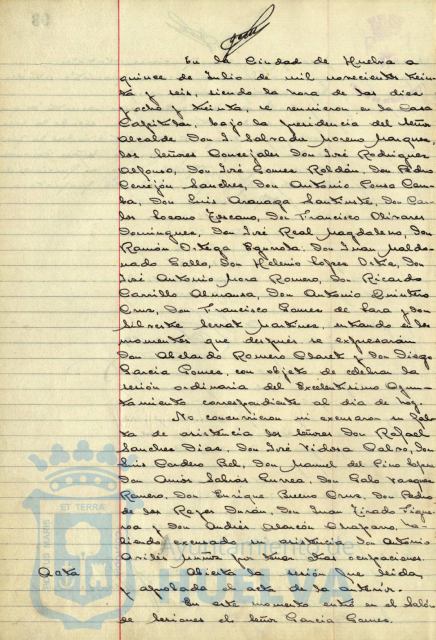 En la Ciudad de Huelva a
quince de Julio de mil novecientos trein
ta y seis, siendo la hora de las dies
y ocho y treinta, se reunieron en la Casa
Capitular, bajo la presidencia del Señor
Alcalde Don J. Salvador Moreno Marquez,
los Señores Concejales Don José Rodriguez
Alfonso, Don José Gomez Roldán, Don Pedro
Cerrejón Sanchez, Don Antonio Pousa Cam
ba, Don Luis Aranaga Santiste, Don Car
los Lozano Toscano, Don Francisco Olivares
Dominguez, Don José Real Magdaleno, Don
Ramón Ortega Egurrola, Don Juan Maldo
nado Gallo, Don Helenio Lopez Ortiz, Don
José Antonio Mora Romero, Don Ricardo
Carrillo Almansa, Don Antonio Quintero
Cruz, Don Francisco Gomez de Lara y Don
Silvestre Serrat Martinez, entrando en los
momentos que después se expresarán
Don Abelardo Romero Claret y Don Diego
Garcia Gomez, con objeto de celebrar la
sesión ordinaria del Excelentisimo Ayun-
tamiento correspondiente al dia de hoy.
No concurrieron ni excusaron su fal
ta de asistencia los señores Don Rafael
Sanchez Diaz, Don José Vidosa Calvo, Don
Luis Cordero Bel, Don Manuel del Pino Lopez
Don Amós Sabrás Gurrea, Don Galo Vazquez
Romero, Don Enrique Bueno Cruz, Don Pedro
de los Reyes Durán, Don Juan Tirado Figue
roa y Don Andrés Alarcón Chaparro, ha-
biendo excusado su asistencia Don Antonio
por tener otras ocupaciones.
Acta Abierta la sesión fue leida
y aprobada el acta de la anterior.
En este momento entró en el Salón
de Sesiones el señor Garcia Gomez.
ET TERRA
Ayuntamiento de
HUELVA